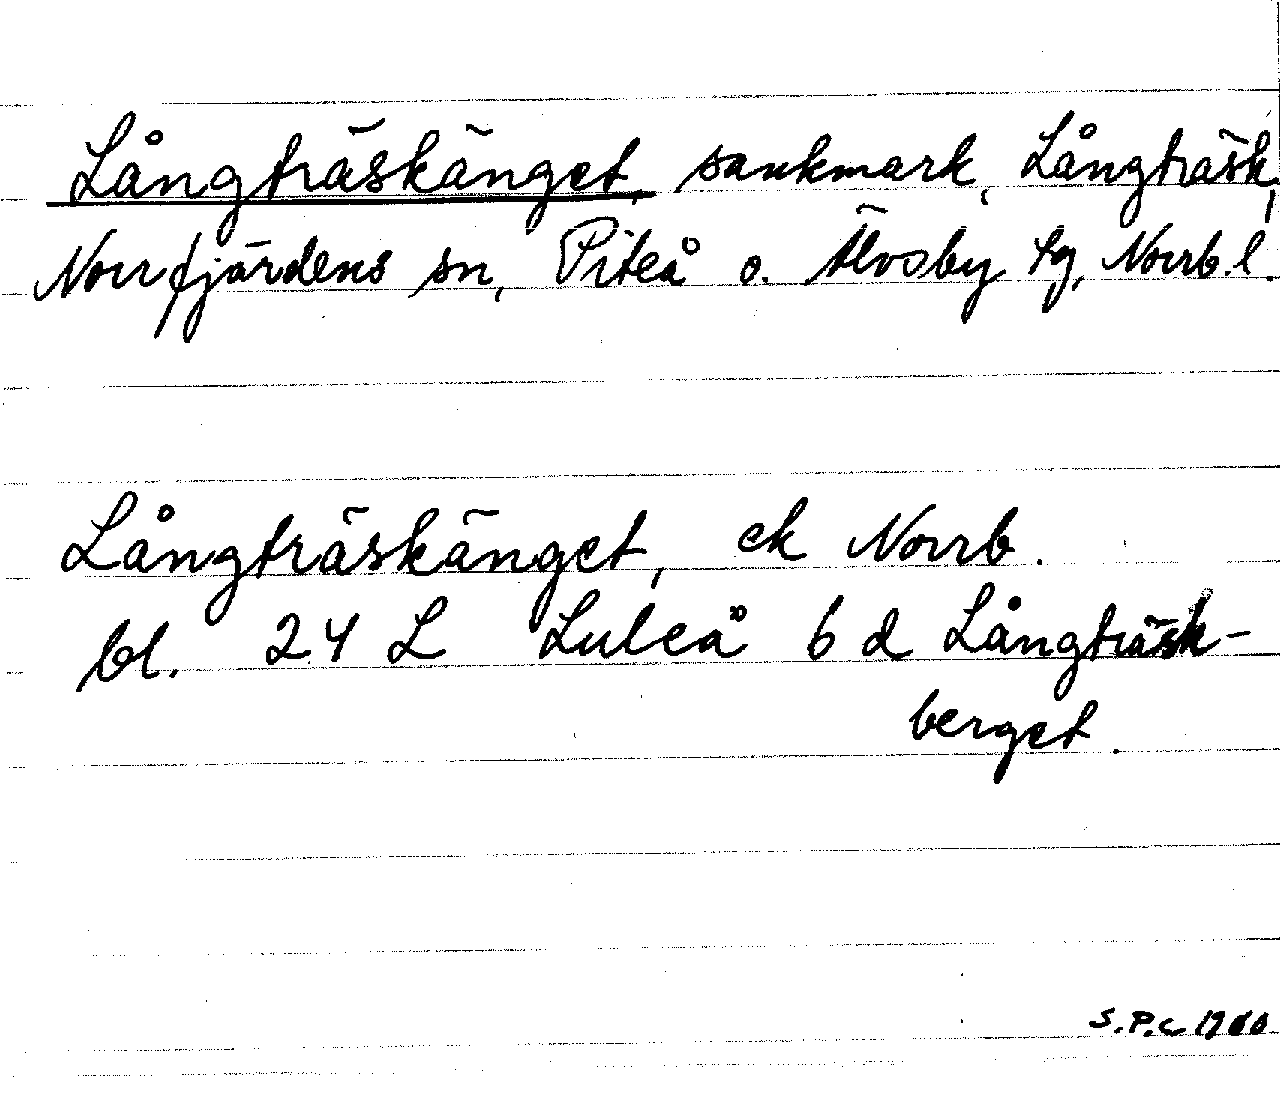 Långträskänget, sankmark, Långträsk,
Norrfjärdens sn, Piteå o. Älvsby tg, Norrb.l.
Långträskänget, ek Norrb.
bl. 24 L Luleå 6 d Långträsk-
berget.
S.P.C 1980